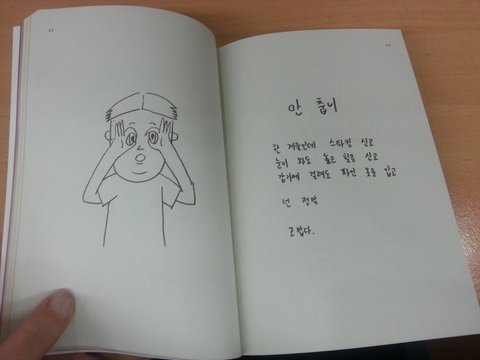 안 춥니
한 겨울인데 스타킹 신고
눈이 와도 높고 힐을 신고
감기에 걸려도 파인 옷을 입고
넌 정말
고맙다.